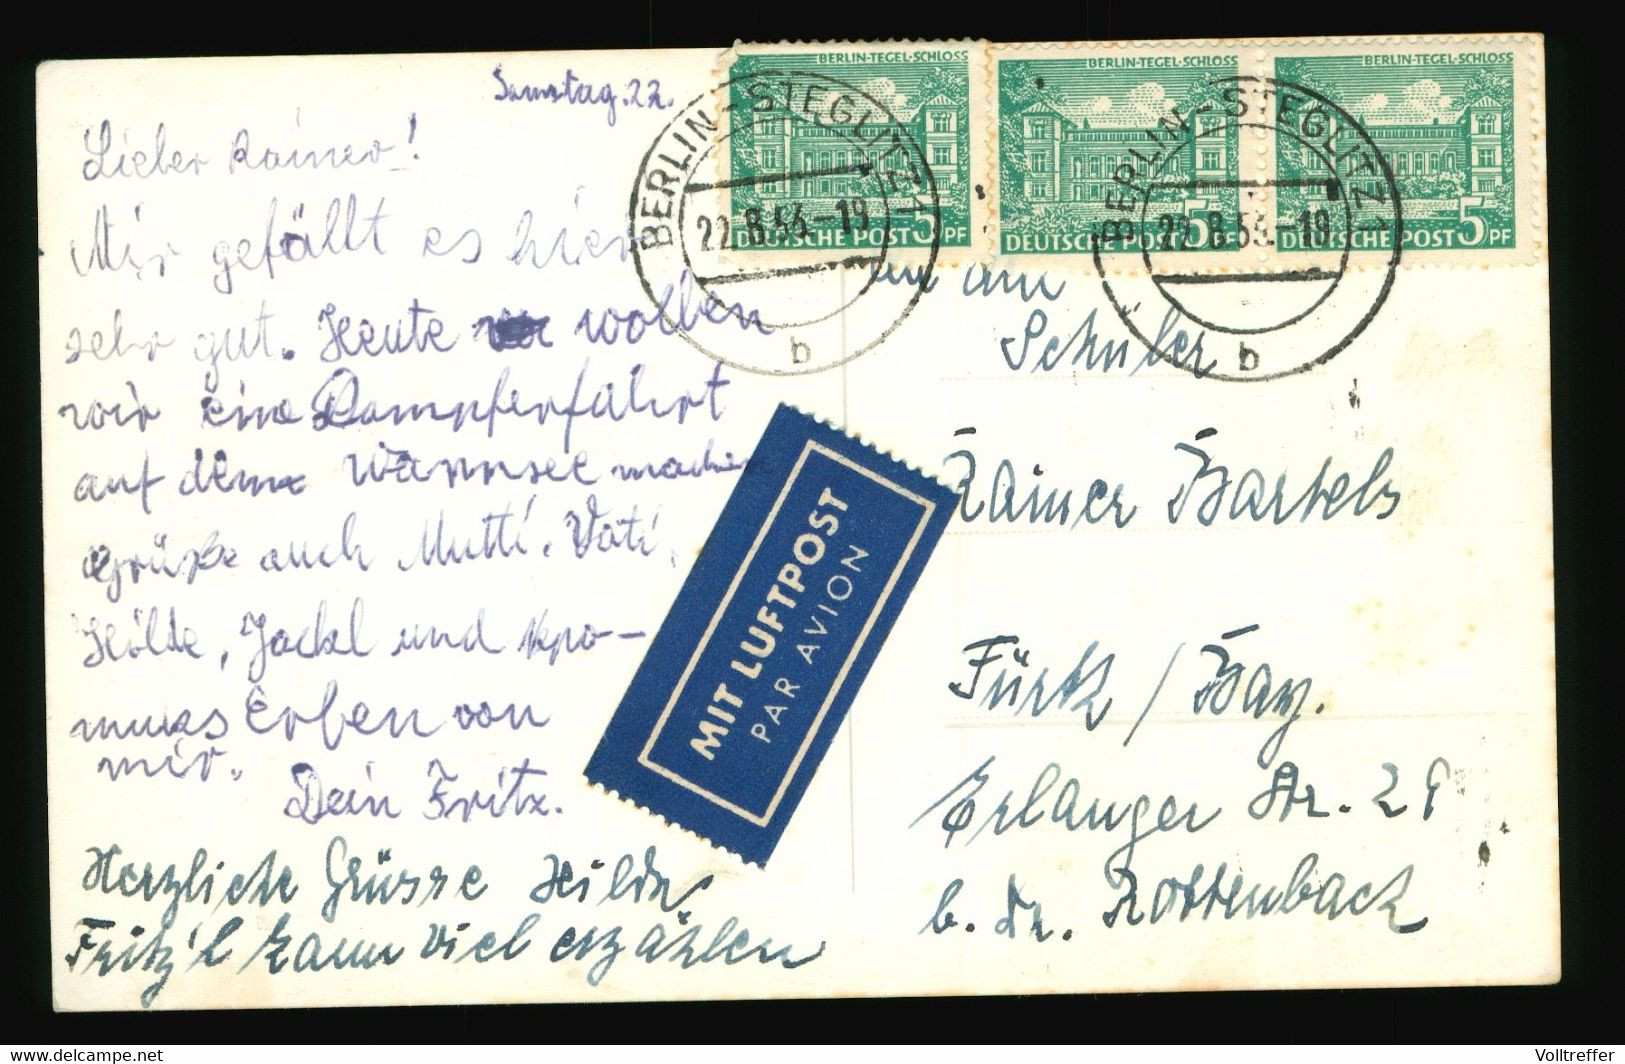 Samstag. 22.
Lieber Rainer!
Mir gefällt es hier
sehr gut. Heute wollen
wir eine Dampferfahrt
auf dem Wannsee machen
Grüße auch Mutti. Vati,
Hilde, Jackl und
muss Erben von
mir.
Dein Fritz.
Herzliche Grüsse Hilde
Fritz'l kann viel erzählen
BERLIN-TEGEL-SCHLOSS
DEUTSCHE POST 5 PF
BERLIN-TEGEL-SCHLOSS
DEUTSCHE POST 5 PF
BERLIN-TEGEL-SCHLOSS
DEUTSCHE POST 5 PF
BERLIN-STEGLITZ 1
22.8.53.-19
b
BERLIN-STEGLITZ 1
22.8.53.-19
b
MIT LUFTPOST
PAR AVION
Schüler
Rainer Bartels
Fürth / Bay.
Erlanger Str.
b. Dr. Rottenbach
Volltreffer